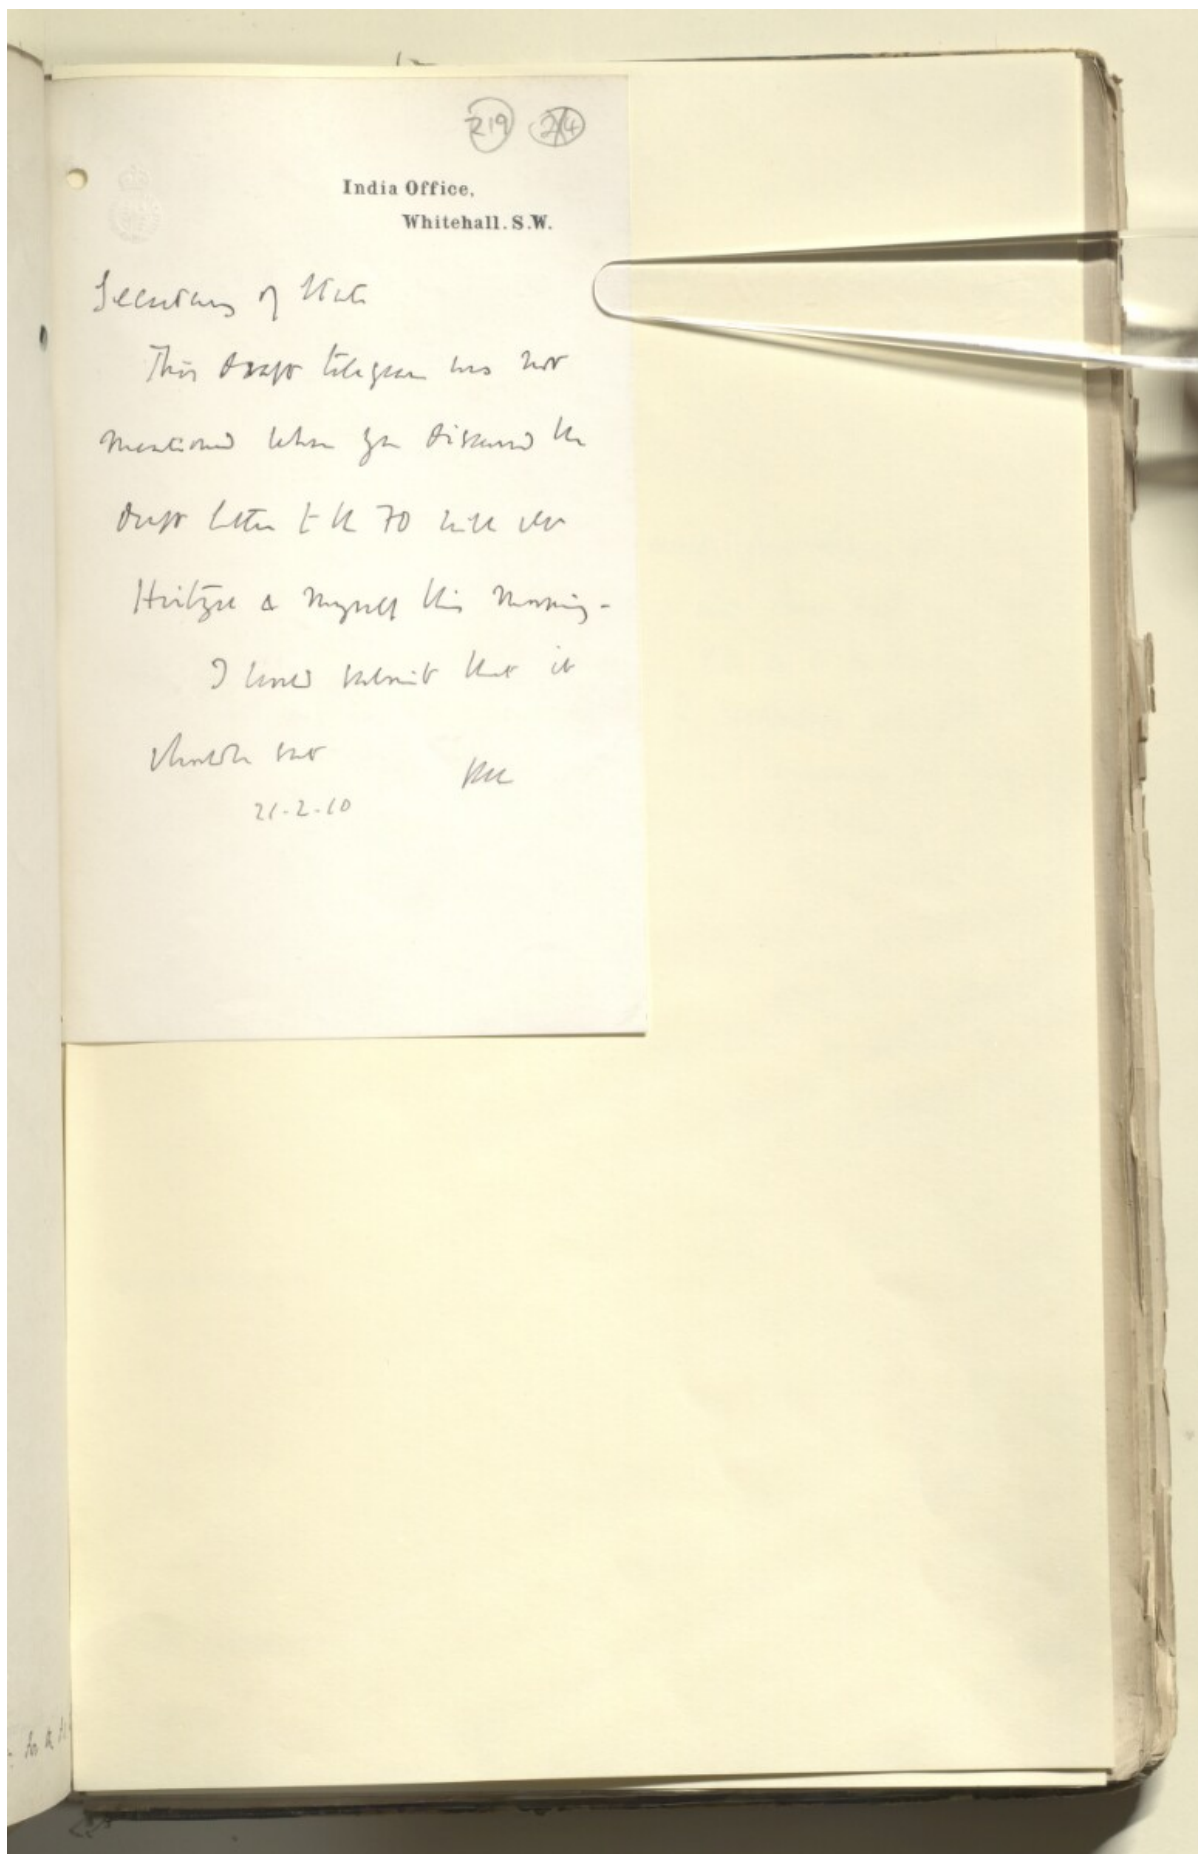 219 214
India Office,
Whitehall. S.W.
Secretary of State
This draft telegram was not
mentioned when you discussed the
draft letter to the FO with
Hirtzel & myself this morning -
I would submit that it
should
21-2-10
for the